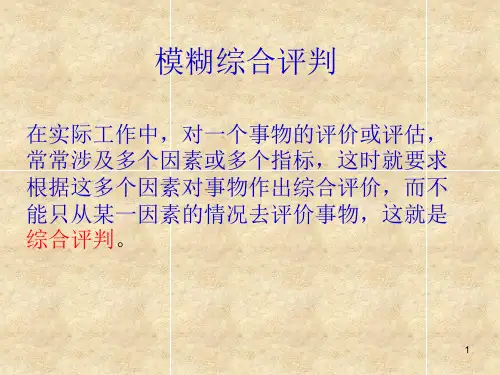 模糊综合评判
在实际工作中，对一个事物的评价或评估，
常常涉及多个因素或多个指标，这时就要求
根据这多个因素对事物作出综合评价，而不
能只从某一因素的情况去评价事物，这就是
综合评判。
1